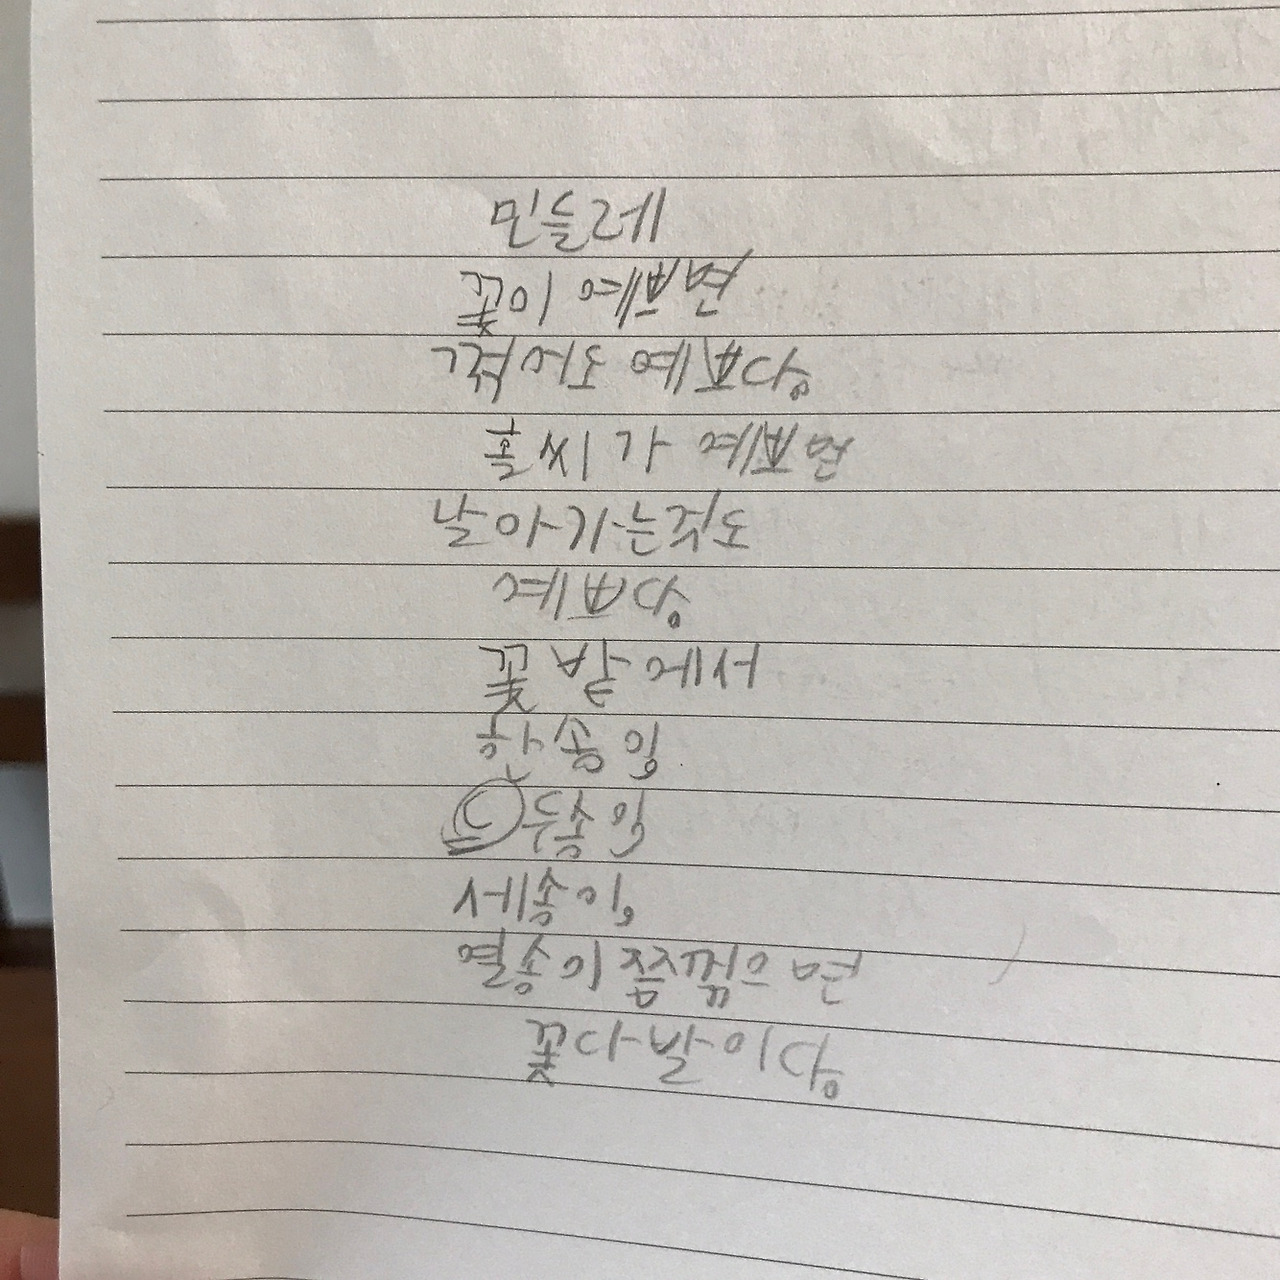 민들레
꽃이 예쁘면
꺾어도 예쁘당
홀씨가 예쁘면
날아가는것도
예쁘당
꽃밭에서
한송이
두송이
세송이
열송이쯤꺾으면
꽃다발이당